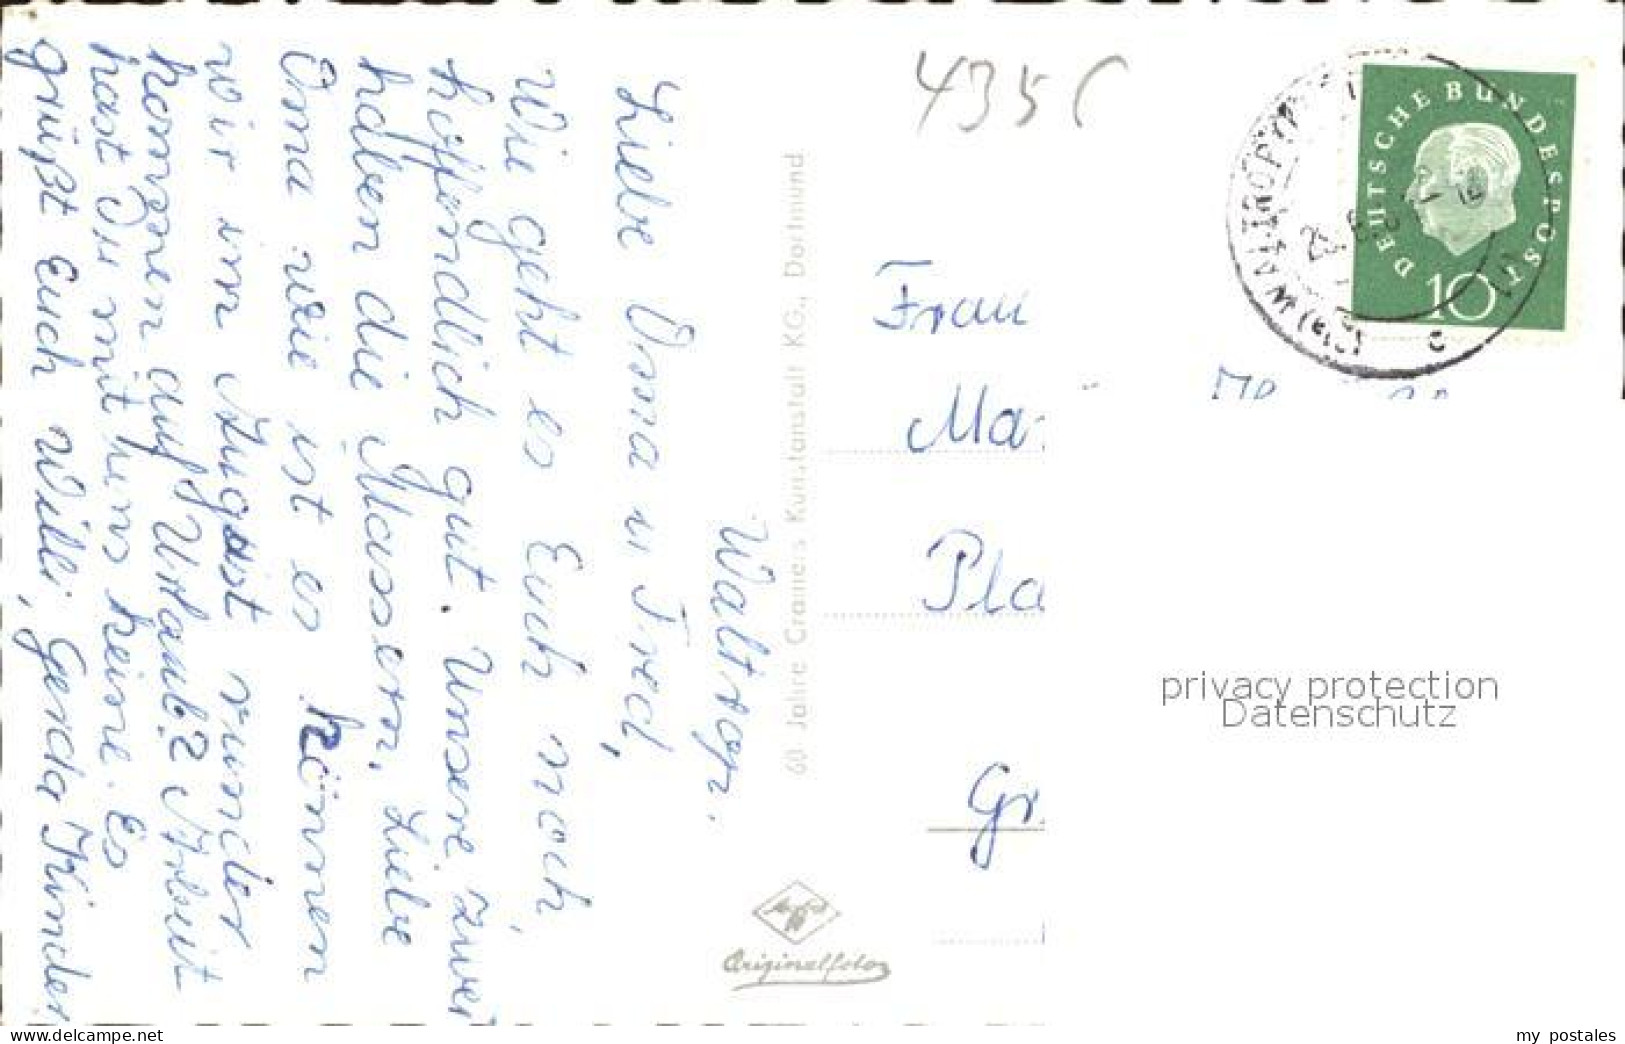 Waltrop.
Liebe Oma u. Fred,
Wie geht es Euch noch,
hoffendlich gut. Unsere zwei
haben die Massern. Liebe
Oma wie ist es können
wir im August runder
kommen auf Urlaub? Arbeit
hast Du mit uns keine. Es
grüßt Euch Willi, Gerda Kinder.
60 Jahre Cramers Kunstanstalt KG., Dortmund
Originalfoto
435
Frau
Ma
Pla
Gr.
DEUTSCHE BUNDESPOST
10
WALTROP
privacy protection
Datenschutz
www.delcampe.net
my_postales